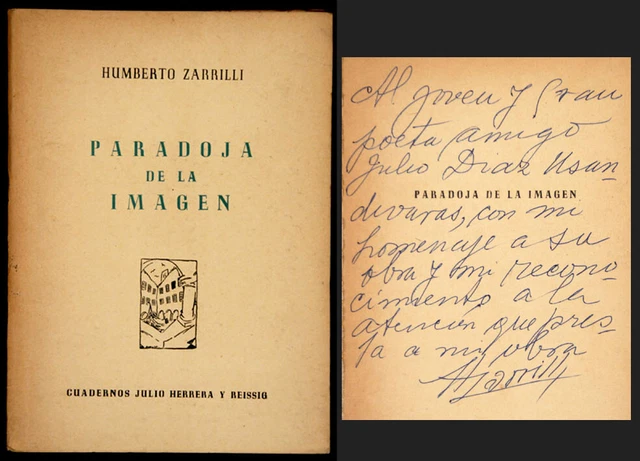 HUMBERTO ZARRILLI
PARADOJA
DE LA
IMAGEN
CUADERNOS JULIO HERRERA Y REISSIG
Al joven y gran
poeta amigo
Julio Diaz Usan-
PARADOJA DE LA IMAGEN
divaras, con mi
homenaje a su
obra y mi recono-
cimiento a la
atención que pres-
ta a mi obra
HZarrilli